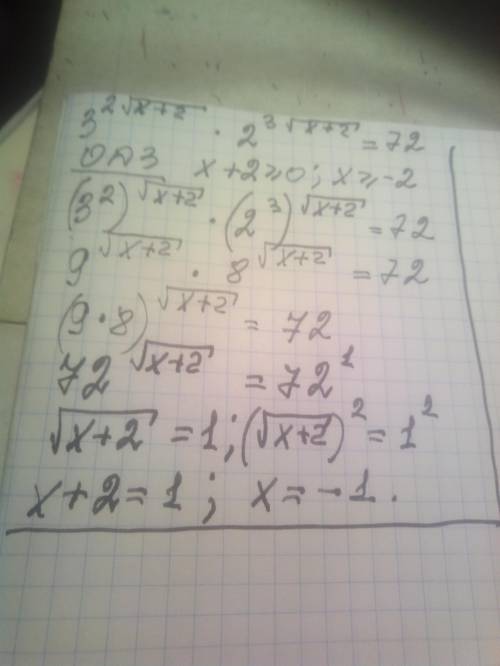 3^{2√(x+2)} · 2^{3√(x+2)} = 72
ОДЗ x+2≥0; x≥-2
(3^2)^{√(x+2)} · (2^3)^{√(x+2)} = 72
9^{√(x+2)} · 8^{√(x+2)} = 72
(9·8)^{√(x+2)} = 72
72^{√(x+2)} = 72^1
√(x+2) = 1; (√(x+2))^2 = 1^2
x+2=1; x=-1.